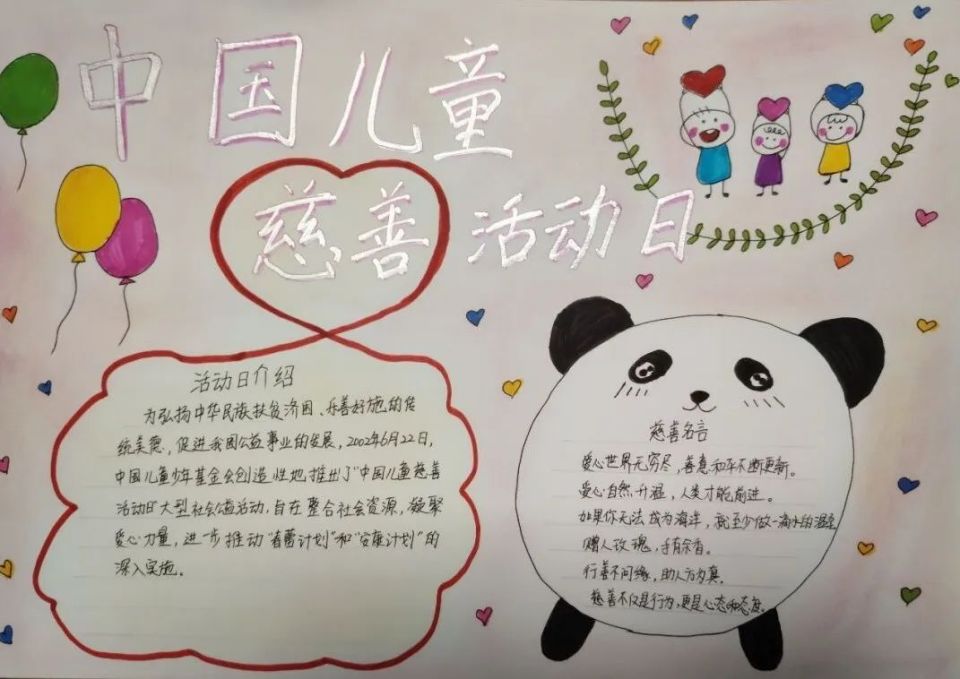 中国儿童
慈善活动日
活动日介绍
为弘扬中华民族扶贫济困、乐善好施的传
统美德,促进我国公益事业的发展,2002年6月22日,
中国儿童少年基金会创造性地推出了“中国儿童慈善
活动日”大型社会公益活动,旨在整合社会资源,凝聚
爱心力量,进一步推动“春蕾计划”和“安康计划”的
深入实施。
慈善名言
爱心世界无穷尽,善意和平不断更新。
爱心自然升温,人类才能前进。
如果你无法成为海洋,就至少做一滴水的温柔
赠人玫瑰,手有余香。
行善不问缘,助人方为真。
慈善不仅是行为,更是心态和态度。